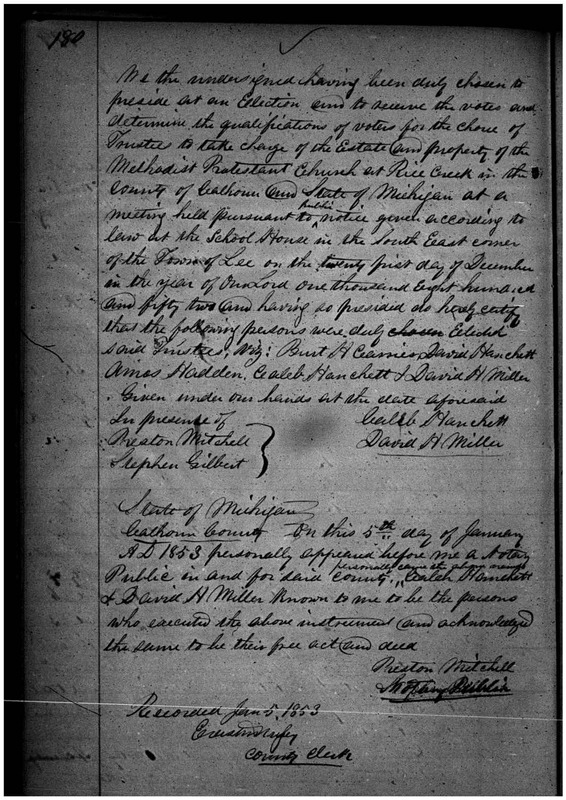 180
We the undersigned having been duly chosen to
preside at an Eelection and to receive the votes and
determine the qualifications of voters for the choice of
Trustees to take charge of the Estate and property of the
Methodist Protestant Church at Rice Creek in the
County of Calhoun and State of Michigan at a
meeting held pursuant to public notice given according to
law at the School House in the South East corner
of the Town of Lee on the twenty first day of December
in the year of Our Lord one thousand Eight hundred
and fifty two and having so presided do hereby certify
that the following persons were duly chosen Elected
said Trustees, Viz: Burt H David Hanchett
Amos Hadden, Caleb Hanchett & David H Miller
Given under our hands at the date aforesaid
In presence of Caleb Hanchett
Preston Mitchell David H Miller
Stephen Gilbert
State of Michigan
Calhoun County On this 5th day of January
A.D 1853 personally appeared before me a Notary
personally came the above named
Public in and for said County, Caleb Hanchett
& David H Miller Known to me to be the persons
who executed the above instrument and acknowledged
the same to be their free act and deed
Preston Mitchell
Notary Public
Recorded Jan 5, 1853
County Clerk